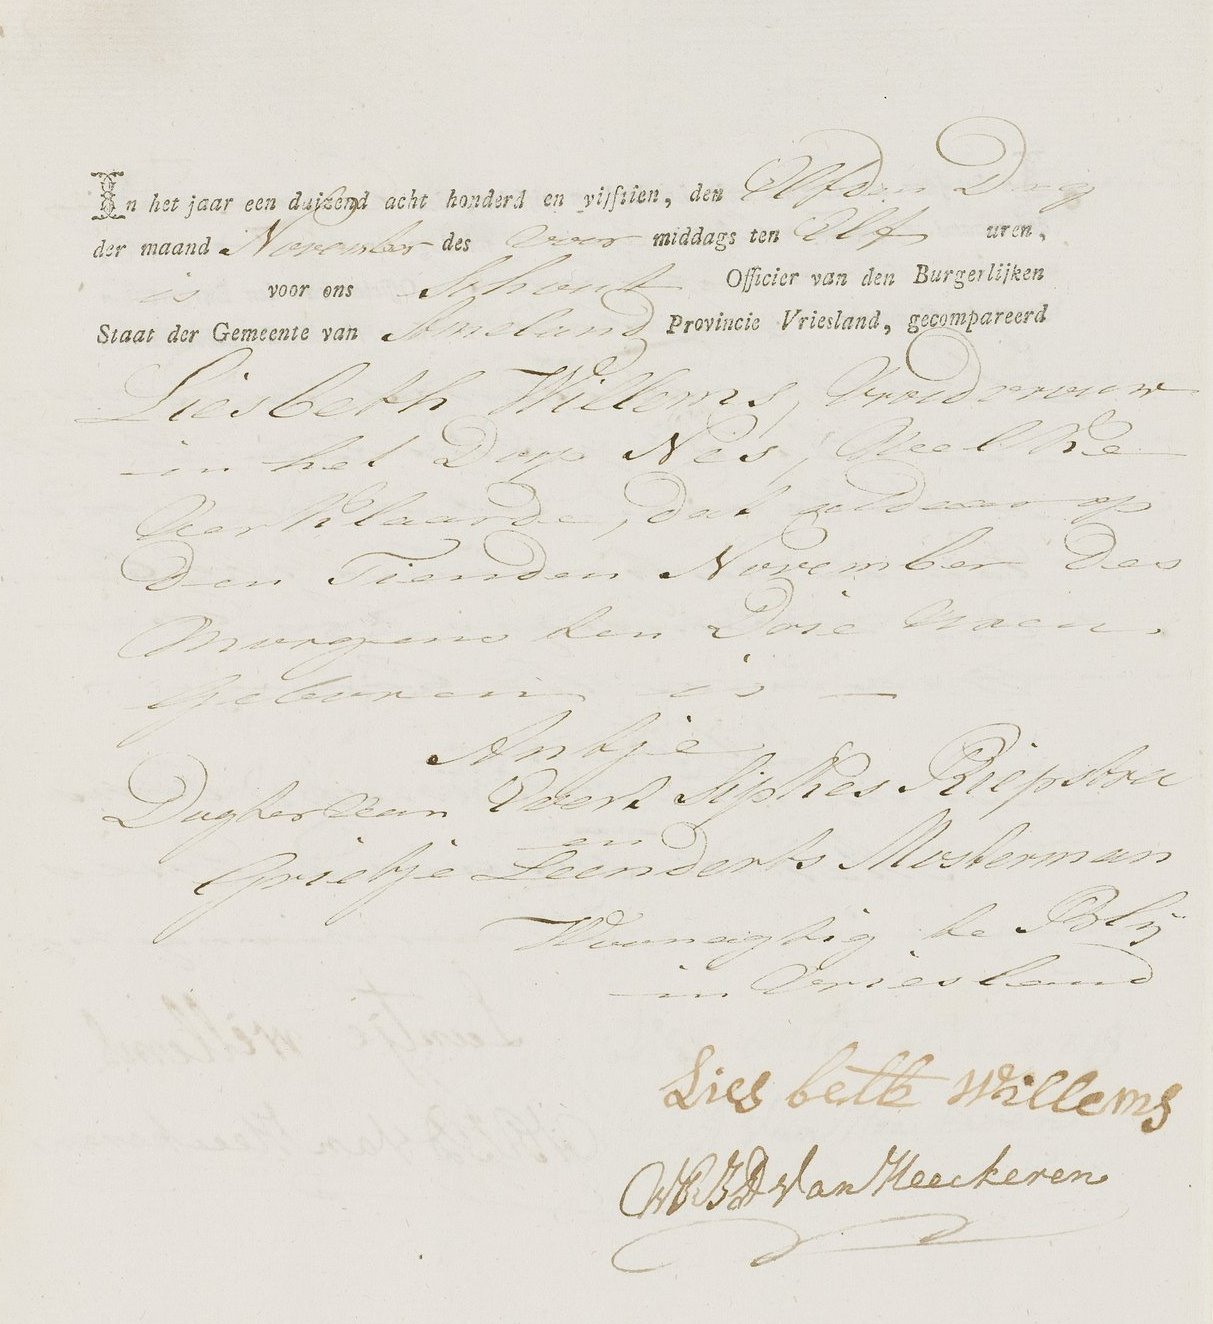 In het jaar een duizend acht honderd en vijftien, den Elfden Dag
der maand November des voor middags ten Elf uren,
is voor ons Schout Officier van den Burgerlijken
Staat der Gemeente van Ameland Provincie Vriesland, gecompareerd
Liesbeth Willems, Vroedvrouw
in het Dorp Nes, Welke
Verklaarde, dat aldaar op
den Tienden November des
Morgens ten Drie Uren
Geboren is
Antje
Dogter van Evert Sipkes Riepstra
en
Grietje Leenderts Mosterman
Woonagtig te Blij
in Vriesland
Liesbeth Willems
Van Heeckeren